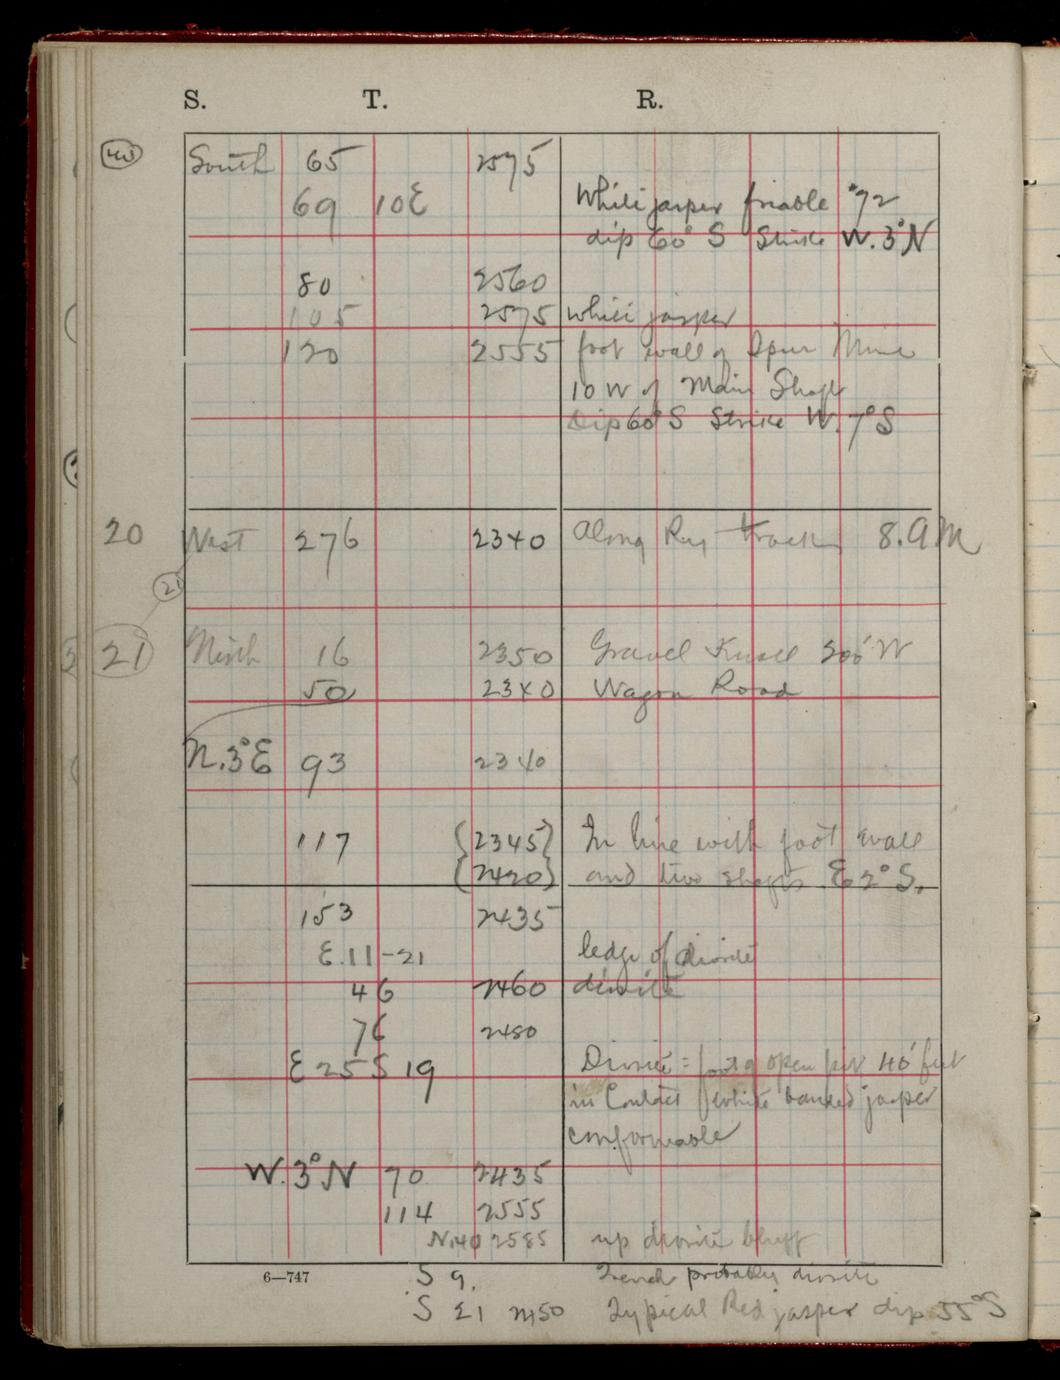 S. T. R.
South 65 2575
69 10E White jasper friable #72
dip 60° S Strike W. 3° N
80 2560
105 2575 white jasper
120 2555 foot wall of Spur Mine
10 W of Main Shaft
Dip 60° S Strike W. 7° S
20 West 276 2340 Along Ry track 8. A M
21
21 North 16 2350 Gravel Knoll 200' W
50 2340 Wagon Road
N. 3° E 93 2340
117 {2345} In line with foot wall
{2420} and two shafts E 2° S.
153 2435
E. 11-21 ledge of diorite
46 2460 diorite
76 2480
E 25 S 19 Diorite = foot of open pit 40 feet
in Contact white banded jasper
conformable
W. 3° N 70 2435
114 2555
N. 40 2585 up diorite bluff
6—747
S 9. Trench probably diorite
S 21 2450 Typical Red jasper dip 55° S